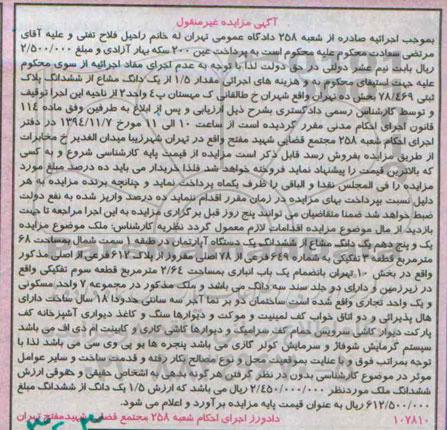 آگهی مزایده غیرمنقول
بموجب اجرائیه صادره از شعبه ۲۵۸ دادگاه عمومی تهران له خانم راحیل فلاح تفتی و علیه آقای
مرتضی سعادت محکوم علیه محکوم است به پرداخت عین ۲۰۰ سکه بهار آزادی و مبلغ ۲/۵۰۰/۰۰۰
ریال بابت نیم عشر دولتی در حق دولت لذا با توجه به عدم اجرای مفاد اجرائیه از سوی محکوم
علیه جهت استیفای محکوم به و هزینه های اجرائی مقدار ۱/۵ از یک دانگ مشاع از ششدانگ پلاک
ثبتی ۷۸/۴۶۹ بخش ده تهران واقع شهران خ طالقانی ک مهستان پ۴ واحد۲ از ناحیه این اجرا توقیف
و توسط کارشناس رسمی دادگستری بشرح ذیل ارزیابی و پس از ابلاغ به طرفین وفق ماده ۱۱۴
قانون اجرای احکام مدنی مقرر گردیده است از ساعت ۱۰ الی ۱۱ مورخ ۱۳۹۴/۱۱/۷ در دفتر
اجرای احکام شعبه ۲۵۸ مجتمع قضایی شهید مفتح واقع در تهران شهرزیبا میدان الغدیر خ مخابرات
از طریق مزایده بفروش رسد قابل ذکر است مزایده از قیمت پایه کارشناسی شروع و به کسی
که بالاترین قیمت را پیشنهاد نماید فروخته خواهد شد فلذا خریدار می باید ده درصد مبلغ مورد
مزایده را فی المجلس نقدا و الباقی را ظرف یکماه پرداخت نماید و چنانچه برنده مزایده به هر
دلیل نسبت بپرداخت بهای مزایده در زمان مقرر اقدام ننماید ده درصد واریز شده به نفع دولت
ضبط خواهد شد ضمنا متقاضیان می توانند پنج روز قبل برگزاری مزایده به این اجرا مراجعه تا جهت
بازدید از مال موضوع مزایده اقدامات لازم معمول گردد نظریه کارشناس: ملک موضوع مزایده
یک و پنج دهم یک دانگ مشاع از ششدانگ یک دستگاه آپارتمان در طبقه ۱ سمت شمال بمساحت ۶۸
مترمربع قطعه ۳ تفکیکی به شماره ۶۴۹فرعی از ۷۸ اصلی مفروز از پلاک ۶۱۲ فرعی از اصلی مذکور
واقع در بخش ۱۰ تهران بانضمام یک باب انباری بمساحت ۲/۶۴ مترمربع قطعه سوم تفکیکی واقع
در زیرزمین و دارای دو جلد سند سه دانگ می باشد و ملک مذکور در مجموعه ۷ واحد مسکونی
و یک واحد تجاری واقع شده است ساختمان دو بر نما آجر سه سانتی حدودا ۱۸ سال ساخت دارای
هال پذیرائی و دو اتاق خواب کف لمینیت و موکت و دیوارها سنگ و کاغذ دیواری آشپزخانه کف
پارکت دیوار کاشی سرویس حمام کف سرامیک و دیوارها کاشی کاری و کابینت ام دی اف می باشد
سیستم گرمایش شوفاژ و سرمایش کولر گازی می باشد پنجره ها یو پی وی سی می باشد لذا با
توجه بمراتب فوق و با عنایت بموقعیت محل و نوع مصالح بکار رفته و قدمت ساخت و سایر عوامل
موثر در موضوع کارشناسی بدون در نظر گرفتن هر گونه بدهی به اشخاص حقیقی و حقوقی ارزش
ششدانگ ملک موردنظر ۲/۴۵۰/۰۰۰/۰۰۰ ریال می باشد که ارزش ۱/۵ یک دانگ از ششدانگ مبلغ
۶۱۲/۵۰۰/۰۰۰ ریال به عنوان قیمت پایه مزایده برآورد و اعلام می شود.
۱۰۷۸۱۰ دادورز اجرای احکام شعبه ۲۵۸ مجتمع قضایی شهید مفتح تهران